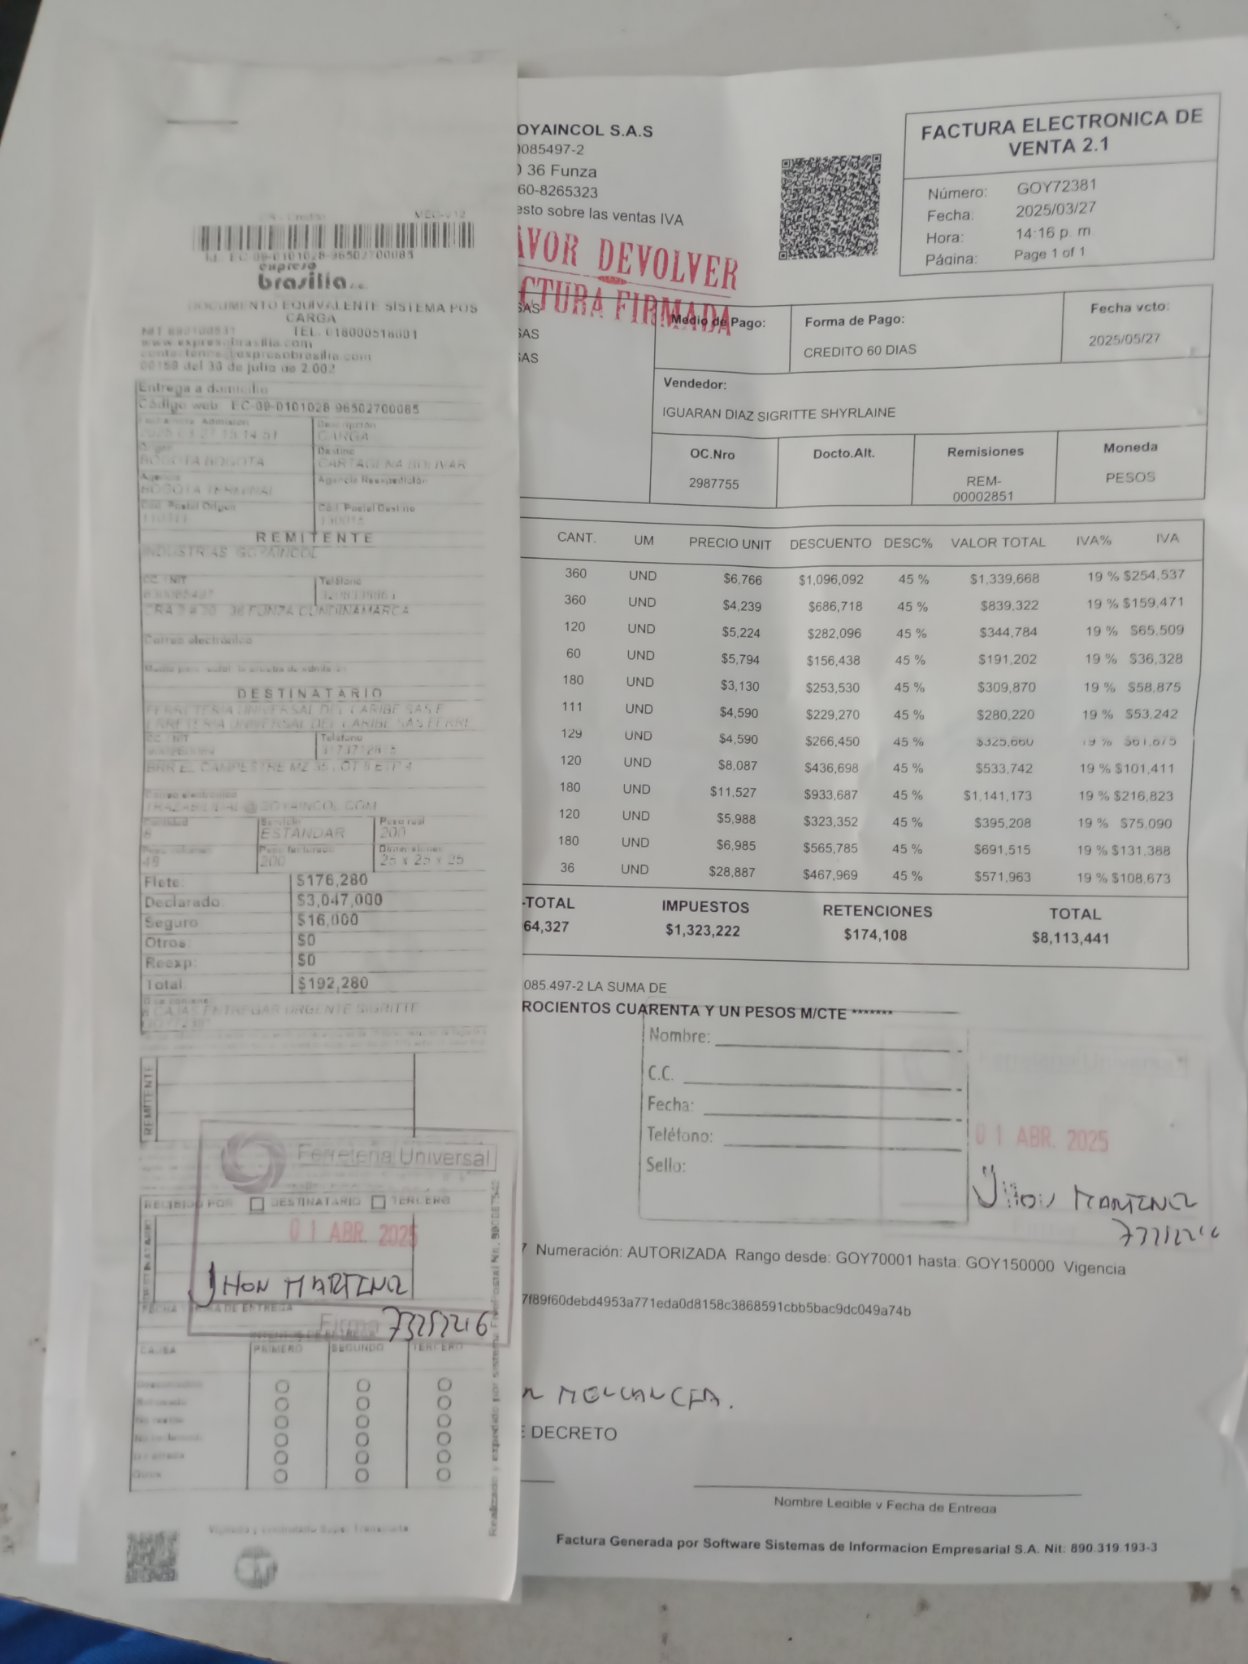 Id. EC-09-0101028-96502700085
expreso
brasilia
DOCUMENTO EQUIVALENTE SISTEMA POS
CARGA
TEL. 018000518001
www.expresobrasilia.com
contactenos@expresobrasilia.com
00169 del 30 de julio de 2.002
Entrega a domicilio
Código web: EC-09-0101028-96502700085
CARGA
Origen Destino
BOGOTA BOGOTA CARTAGENA BOLIVAR
Agencia Agencia Reexpedición
BOGOTA TERMINAL
Cód. Postal Origen Cód. Postal Destino
REMITENTE
INDUSTRIAS GOYAINCOL
CC / NIT Teléfono
36 FUNZA CUNDINAMARCA
Correo electrónico
DESTINATARIO
FERRETERIA UNIVERSAL DEL CARIBE SAS F
ERRETERIA UNIVERSAL DEL CARIBE SAS FERRE
CC / NIT Teléfono
Correo electrónico
Cantidad Servicio Peso real
ESTANDAR 200
Peso facturado
48 200 25 x 25 x 25
Flete: $176,280
Declarado $3,047,000
Seguro $16,000
Otros $0
Reexp: $0
Total $192,280
CAJAS ENTREGAR URGENTE SIGRITTE
REMITENTE
Ferretería Universal
RECIBIDO POR DESTINATARIO TERCERO
01 ABR. 2025
JHON MARTINEZ
Firma 73252216
CAUSA PRIMERO SEGUNDO TERCERO
OYAINCOL S.A.S
0085497-2
36 Funza
60-8265323
esto sobre las ventas IVA
AVOR DEVOLVER
CTURA FIRMADA
SAS
SAS
SAS
FACTURA ELECTRONICA DE
VENTA 2.1
Número: GOY72381
Fecha: 2025/03/27
Hora: 14:16 p. m.
Página: Page 1 of 1
Medio de Pago: Forma de Pago: Fecha vcto:
CREDITO 60 DIAS 2025/05/27
Vendedor:
IGUARAN DIAZ SIGRITTE SHYRLAINE
OC.Nro Docto.Alt. Remisiones Moneda
2987755 REM-00002851 PESOS
CANT. UM PRECIO UNIT DESCUENTO DESC% VALOR TOTAL IVA% IVA
360 UND $6,766 $1,096,092 45 % $1,339,668 19 % $254,537
360 UND $4,239 $686,718 45 % $839,322 19 % $159,471
120 UND $5,224 $282,096 45 % $344,784 19 % $65,509
60 UND $5,794 $156,438 45 % $191,202 19 % $36,328
180 UND $3,130 $253,530 45 % $309,870 19 % $58,875
111 UND $4,590 $229,270 45 % $280,220 19 % $53,242
129 UND $4,590 $266,450 45 % $325,660 19 % $61,875
120 UND $8,087 $436,698 45 % $533,742 19 % $101,411
180 UND $11,527 $933,687 45 % $1,141,173 19 % $216,823
120 UND $5,988 $323,352 45 % $395,208 19 % $75,090
180 UND $6,985 $565,785 45 % $691,515 19 % $131,388
36 UND $28,887 $467,969 45 % $571,963 19 % $108,673
-TOTAL IMPUESTOS RETENCIONES TOTAL
64,327 $1,323,222 $174,108 $8,113,441
085.497-2 LA SUMA DE
ROCIENTOS CUARENTA Y UN PESOS M/CTE *******
Nombre:
C.C.
Fecha:
Teléfono:
Sello:
Ferretería Universal
01 ABR. 2025
JHON MARTINEZ
7 Numeración: AUTORIZADA Rango desde: GOY70001 hasta: GOY150000 Vigencia
7f89f60debd4953a771eda0d8158c3868591cbb5bac9dc049a74b
E DECRETO
Nombre Legible y Fecha de Entrega
Factura Generada por Software Sistemas de Informacion Empresarial S.A. Nit: 890.319.193-3